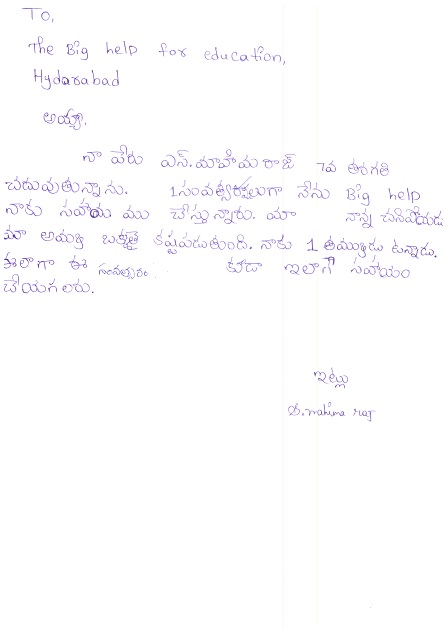 To,
The Big help for education,
Hydarabad
అయ్యా,
నా పేరు ఎస్.మాహిమ రాజ్ 7వ తరగతి
చదువుతున్నాను. 1సంవత్సరాలుగా నేను Big help
నాకు సహాయ ము చేస్తున్నారు. మా నాన్న చనిపోయడు
మా అమ్మ ఒక్కతై కష్టపడుతుంది. నాకు 1 తమ్ముడు ఉన్నాడు.
ఈలాగా ఈ సంవత్సరం కూడా ఇలాగే సహాయం
చేయగలరు.
ఇట్లు
S. mahima raj